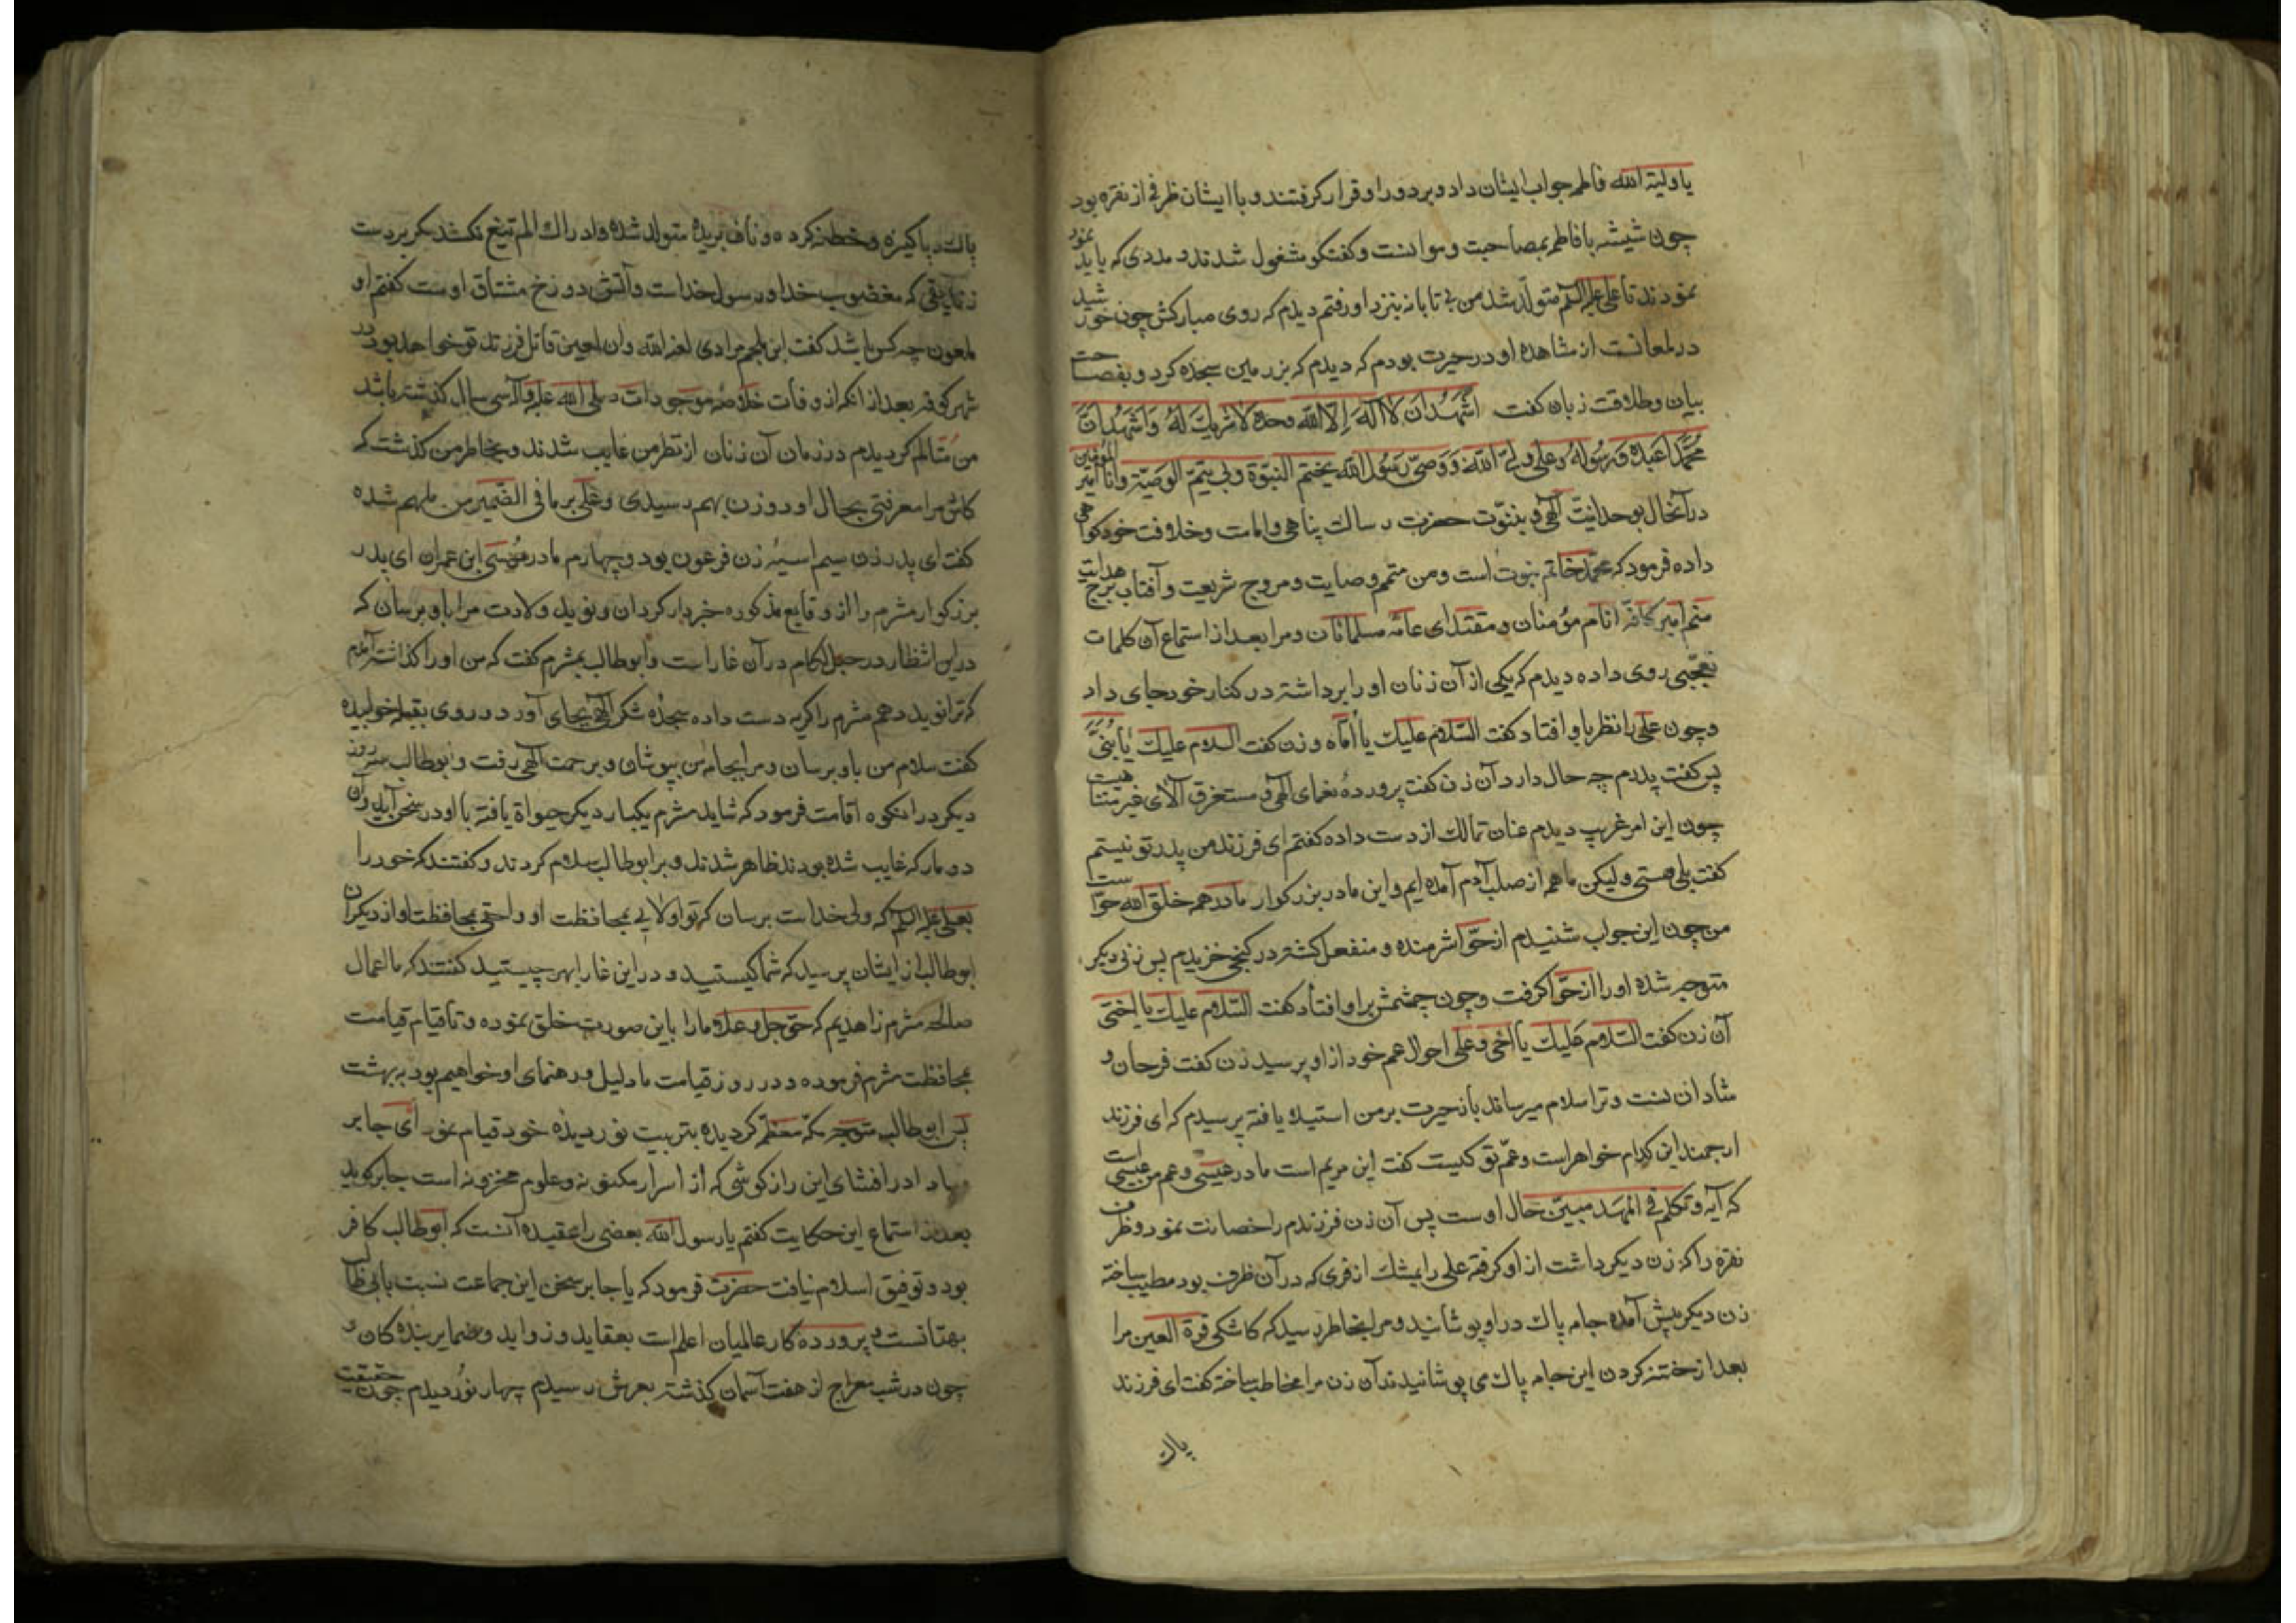 یا ولیة الله فاطمه جواب ایشان داد و بر دور او قرار کرفتند و با ایشان ظرفی از نقره بود
چون شیشه با فاطمه بمصاحبت و موانست و کفتکو مشغول شدند و مددی که باید نمود
نمودند تا علی علیه السلم متولد شد من بی تابانه بنزد او رفتم دیدم که روی مبارکش چون خورشید
در لمعانست از مشاهده او در حیرت بودم که دیدم که بر زمین سجده کرد و بفصاحت
بیان و طلاقت زبان کفت اشهد ان لا اله الا الله وحده لا شریک له و اشهد ان
محمدا عبده و رسوله و علی ولی الله و وصی رسول الله یختم النبوة و بی یتم الوصیة و انا امیر المؤمنین
در آنحال بوحدانیت آلهی و بنبوت حضرت رسالت پناهی و امامت و خلافت خود کواهی
داده فرمود که محمد خاتم نبوت است و من متمم وصایت و مروج شریعت و آفتاب برج هدایت
منم امیر کافه انام مؤمنان و مقتدای عامه مسلمانان و مرا بعد از استماع آن کلمات
تعجبی روی داده دیدم که یکی از آن زنان او را برداشته در کنار خود جای داد
و چون علی را نظر باو افتاد کفت السلام علیک یا اماه و زن کفت السلام علیک یا بنی
پس کفت پدرم چه حال دارد آن زن کفت پرورده نعمای آلهی و مستغرق آلای غیر متناهیست
چون این امر غریب دیدم عنان تمالک از دست داده کفتم ای فرزند من پدر تو نیستم
کفت بلی هستی ولیکن ما هم از صلب آدم آمده ایم و این مادر بزرکوار ما در همه خلق الله حواست
من چون این جواب شنیدم از حوا شرمنده و منفعل کشته در کنجی خزیدم پس زنی دیکر
متوجه شده او را از حوا کرفت و چون چشمش بر او افتاد کفت السلام علیک یا اختی
آن زن کفت السلام علیک یا اخی و علی احوال عم خود از او پرسید زن کفت فرحان و
شادانست و ترا سلام میرساند باز حیرت بر من استیلا یافته پرسیدم که ای فرزند
ارجمند این کدام خواهر است و عم تو کیست کفت این مریم است مادر عیسی و عم من عیسی است
که آیه و تکلم فی المهد مبین حال اوست پس آن زن فرزندم را حضانت نمود و ظرف
نقره را که زن دیکر داشت از او کرفته علی را بمشک اذفری که در آن ظرف بود مطیب ساخته
زن دیکر پیش آمده جامه پاک در او پوشانید و مرا بخاطر رسید که کاشکی قرة العین مرا
بعد از ختنه کردن این جامه پاک می پوشانیدند آن زن مرا مخاطب ساخته کفت ای فرزند
پاک
پاک و پاکیزه و ختنه کرده و ناف بریده متولد شده و ادراک الم تیغ نکشد مکر بر دست
زندیقی که مغضوب خدا و رسول خداست و آتش دوزخ مشتاق اوست کفتم او
ملعون چه کس باشد کفت ابن ملجم مرادی لعنه الله و ان لعین قاتل فرزند تو خواهد بود در
شهر کوفه بعد از انکه از وفات خلاصه موجودات صلی الله علیه و آله سی سال کذشته باشد
من متالم کردیدم در زمان آن زنان از نظر من غایب شدند و بخاطر من کذشت که
کاش مرا معرفتی بحال او دو زن بهم رسیدی و علی بر ما فی الضمیر من ملهم شده
کفت ای پدر زن سیم اسیه زن فرعون بود و چهارم مادر موسی ابن عمران ای پدر
بزرکوار مثرم را از وقایع مذکوره خبردار کردان و نوید ولادت مرا باو برسان که
در این انتظار در جبل لکام در آن غار است و ابو طالب بمثرم کفت که من او را کذاشته آمدم
که ترا نوید دهم مثرم را کریه دست داده سجده شکر آلهی بجای آورد و روی بقبله خوابیده
کفت سلام من باو برسان و مرا بجامه من بپوشان و برحمت آلهی رفت و ابو طالب سه روز
دیکر در انکوه اقامت فرمود که شاید مثرم یکبار دیکر حیواة یافته با او در سخن آید و آن
دو مار که غایب شده بودند ظاهر شدند و بر ابو طالب سلام کردند و کفتند که خود را
بعلی علیه السلم که ولی خداست برسان که تو اولایی بمحافظت او و احقی بمحافظت او از دیکران
ابو طالب از ایشان پرسید که شما کیستید و در این غار بهر چیستید کفتند که ما اعمال
صالحه مثرم زاهدیم که حق جل و علا ما را باین صورت خلق نموده و تا قیام قیامت
بمحافظت مثرم فرموده و در روز قیامت ما دلیل و رهنمای او خواهیم بود به بهشت
پس ابو طالب متوجه مکه معظمه کردیده بتربیت نور دیده خود قیام نمود ای جابر
مبادا در افشای این راز کوشی که از اسرار مکنونه و علوم مخزونه است جابر کوید
بعد از استماع این حکایت کفتم یا رسول الله بعضی را عقیده آنست که ابو طالب کافر
بود و توفیق اسلام نیافت حضرت فرمود که یا جابر سخن این جماعت نسبت بابی طالب
بهتانست و پرورده کار عالمیان اعلم است بعقاید و زواید و ضمایر بنده کان و
چون در شب معراج از هفت آسمان کذشته بعرش رسیدم چهار نور دیدم چون حقیقت